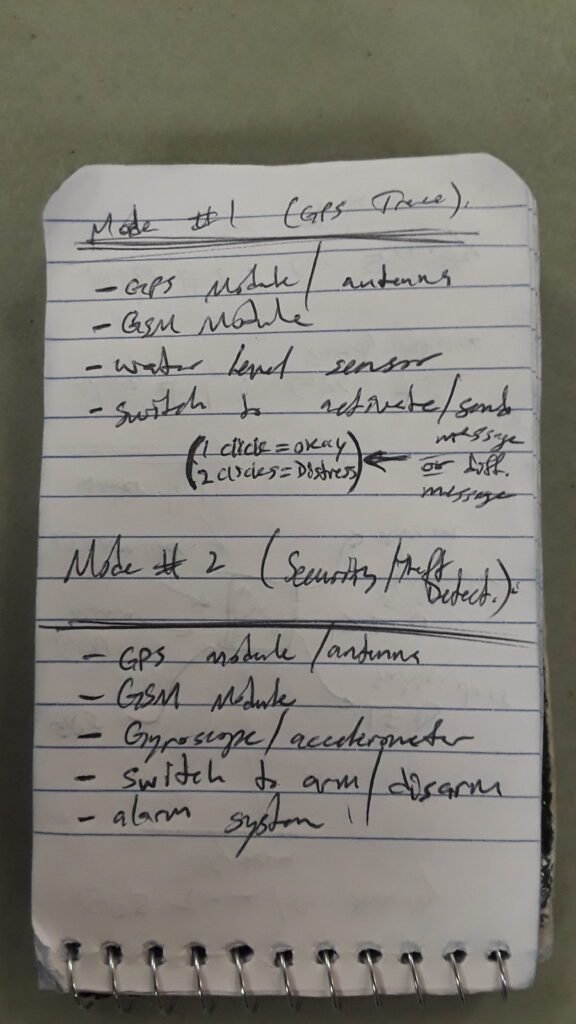 Mode #1 (GPS Trace).
- GPS Module / antenna
- GSM Module
- water level sensor
- switch to activate/send
message
or diff.
message
(1 click = okay
2 clicks = Distress)
Mode # 2 (Security/Theft
Detect.).
- GPS module /antenna
- GSM Module
- Gyroscope/accelerometer
- switch to arm / disarm
- alarm system